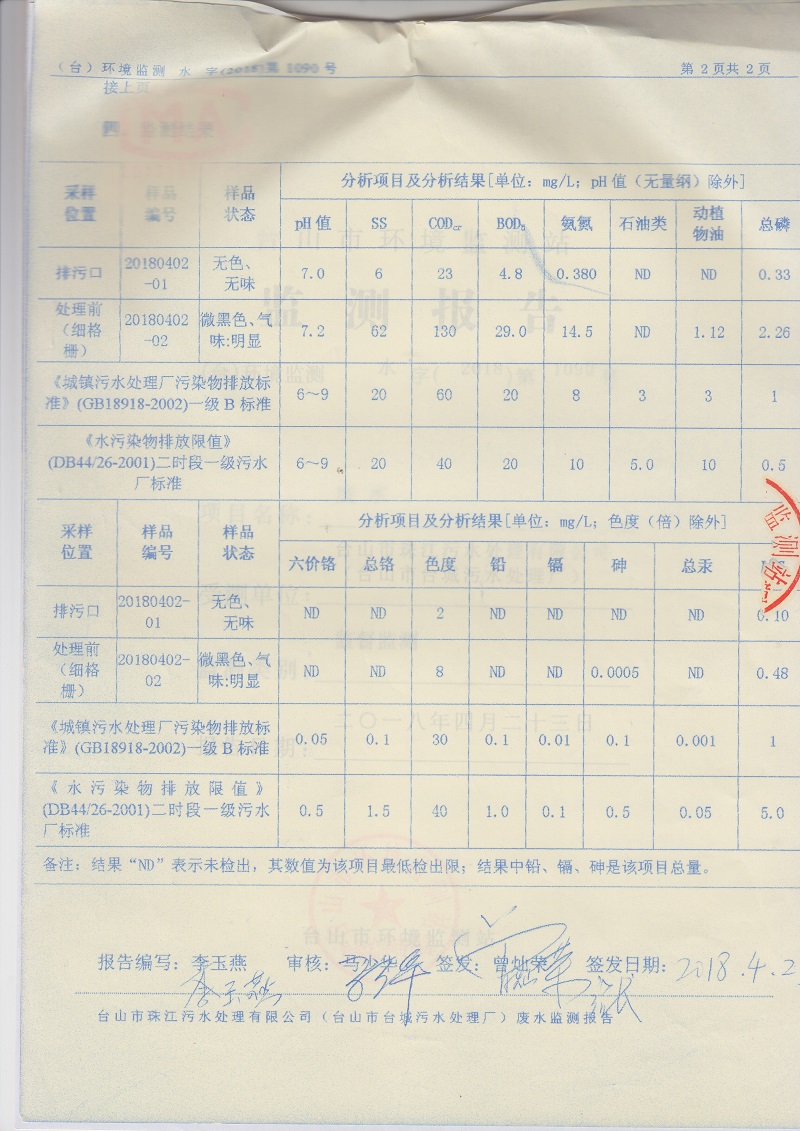 （台）环境监测 水 字(2018)第 1090 号
第 2 页共 2 页
接上页
四、监测结果
采样位置 样品编号 样品状态 分析项目及分析结果[单位：mg/L；pH 值（无量纲）除外]
pH 值 SS CODcr BOD₅ 氨氮 石油类 动植物油 总磷
排污口 20180402-01 无色、无味 7.0 6 23 4.8 0.380 ND ND 0.33
处理前（细格栅） 20180402-02 微黑色、气味:明显 7.2 62 130 29.0 14.5 ND 1.12 2.26
《城镇污水处理厂污染物排放标准》(GB18918-2002)一级 B 标准 6～9 20 60 20 8 3 3 1
《水污染物排放限值》(DB44/26-2001)二时段一级污水厂标准 6～9 20 40 20 10 5.0 10 0.5
采样位置 样品编号 样品状态 分析项目及分析结果[单位：mg/L；色度（倍）除外]
六价铬 总铬 色度 铅 镉 砷 总汞
排污口 20180402-01 无色、无味 ND ND 2 ND ND ND ND 0.10
处理前（细格栅） 20180402-02 微黑色、气味:明显 ND ND 8 ND ND 0.0005 ND 0.48
《城镇污水处理厂污染物排放标准》(GB18918-2002)一级 B 标准 0.05 0.1 30 0.1 0.01 0.1 0.001 1
《水污染物排放限值》(DB44/26-2001)二时段一级污水厂标准 0.5 1.5 40 1.0 0.1 0.5 0.05 5.0
备注：结果“ND”表示未检出，其数值为该项目最低检出限；结果中铅、镉、砷是该项目总量。
监测站
报告编写：李玉燕 审核：马少华 签发：曾灿荣 签发日期：2018.4.2
台山市珠江污水处理有限公司（台山市台城污水处理厂）废水监测报告